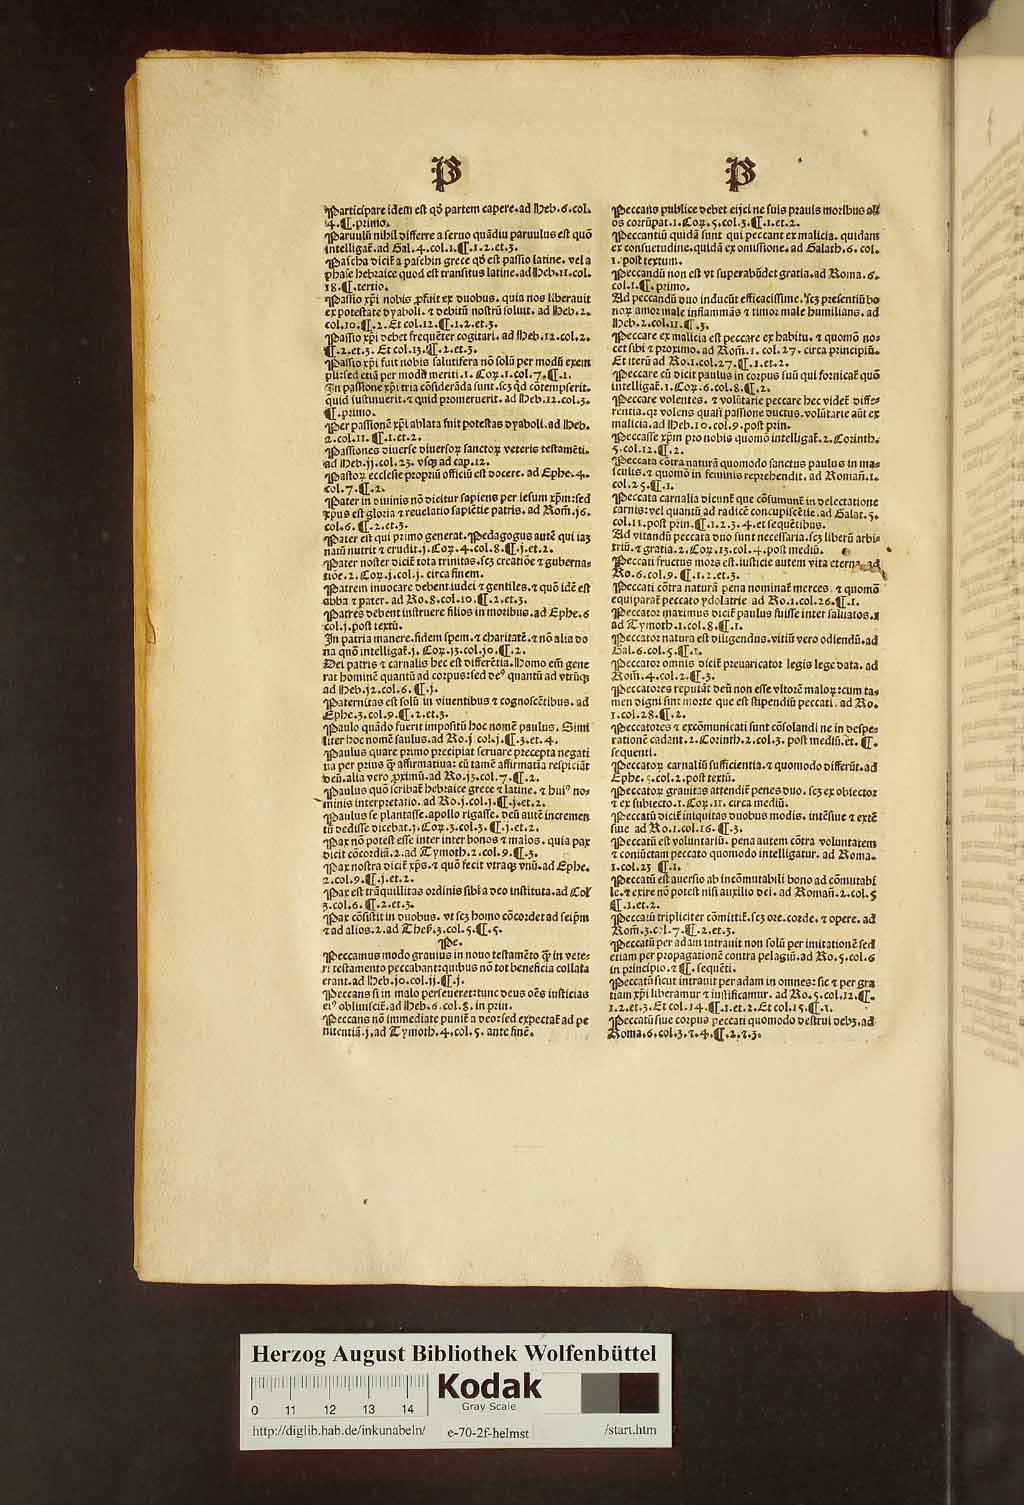 P
Participare idem est qđ partem capere.ad Heb.6.col.
4.¶.primo.
Paruulū nihil differre a seruo quādiu paruulus est quō
intelligat̄.ad Gal.4.col.1.¶.1.2.et.3.
Pascha dicit̄ a paschin grece qđ est passio latine. vel a
phase hebraice quod est transitus latine.ad Heb.11.col.
18.¶.tertio.
Passio xp̄i nobis ꝓfuit ex duobus. quia nos liberauit
ex potestate dyaboli. ⁊ debitū nostrū soluit. ad Heb.2.
col.10.¶.2.Et col.12.¶.1.2.et.3.
Passio xp̄i debet frequēter cogitari. ad Heb.12.col.2.
¶.2.et.3. Et col.13.¶.2.et.3.
Passio xp̄i fuit nobis salutifera nō solū per modū exem
pli:sed etiā per modū meriti.1.Coꝝ.1.col.7.¶.1.
In passione xp̄i tria cōsiderāda sunt.scꝫ qd cōtempserit.
quid sustinuerit.⁊ quid promeruerit. ad Heb.12.col.3.
¶.primo.
Per passionē xp̄i ablata fuit potestas dyaboli.ad Heb.
2.col.11.¶.1.et.2.
Passiones diuerse diuersoꝝ sanctoꝝ veteris testamēti.
ad Heb.jj.col.23. vsqꝫ ad cap.12.
Pastoꝝ ecclesie propriū officiū est docere. ad Ephe.4.
col.7.¶.2.
Pater in diuinis nō dicitur sapiens per iesum xp̄m:sed
xp̄us est gloria ⁊ reuelatio sapiētie patris. ad Rom̄.j6.
col.6.¶.2.et.3.
Pater est qui primo generat. Pedagogus autē qui iaꝫ
natū nutrit ⁊ erudit.j.Coꝝ.4.col.8.¶.j.et.2.
Pater noster dicit̄ tota trinitas.scꝫ creatiōe ⁊ guberna⸗
tiōe.2.Coꝝ.j.col.j. circa finem.
Patrem inuocare debent iudei ⁊ gentiles. ⁊ quō idē est
abba ⁊ pater. ad Ro.8.col.10.¶.2.et.3.
Patres debent instruere filios in moribus. ad Ephe.6
col.j.post textū.
In patria manere.fidem spem.⁊ charitatē.⁊ nō alia do
na quō intelligat̄.j.Coꝝ.13.col.j0.¶.2.
Dei patris ⁊ carnalis hec est differētia. Homo em̄ gene
rat hominē quantū ad corpus:sed deꝰ quantū ad vtrūqꝫ
ad Heb.j2.col.6.¶.j.
Paternitas est solū in viuentibus ⁊ cognoscētibus. ad
Ephe.3.col.9.¶.2.et.3.
Paulo quādo fuerit impositū hoc nomē paulus. Simi
liter hoc nomē saulus.ad Ro.j.col.j.¶.3.et.4.
Paulus quare primo precipiat seruare precepta negati
ua per prius ꝙ̄ affirmatiua: cū tamē affirmatia respiciāt
deū.alia vero ꝓximū.ad Ro.j3.col.7.¶.2.
Paulus quō scribat̄ hebraice grece ⁊ latine. ⁊ huiꝰ no⸗
minis interpretatio. ad Ro.j.col.j.¶.j.et.2.
Paulus se plantasse.apollo rigasse. deū autē incremen
tū dedisse dicebat.j.Coꝝ.3.col.3.¶.j.et.2.
Pax nō potest esse inter inter bonos ⁊ malos. quia pax
dicit cōcordiā.2.ad Tymoth.2.col.9.¶.3.
Pax nostra dicit̄ xp̄s.⁊ quō fecit vtraqꝫ vnū.ad Ephe.
2.col.9.¶.j.et.2.
Pax est trāquillitas ordinis sibi a deo instituta.ad Col
3.col.6.¶.2.et.3.
Pax cōsistit in duobus. vt scꝫ homo cōcordet ad seip̄m
⁊ ad alios.2.ad Thes̄.3.col.5.¶.5.
Pe.
Peccamus modo grauius in nouo testamēto ꝙ̄ in vete⸗
ri testamento peccabant:quibus nō tot beneficia collata
erant.ad Heb.j0.col.jj.¶.j.
Peccans si in malo perseueret:tunc deus oēs iusticias
eiꝰ obliuiscit̄.ad Heb.6.col.8. in prin.
Peccans nō immediate punit̄ a deo:sed expectat̄ ad pe
nitentiā.j.ad Tymoth.4.col.5. ante finē.
P
Peccans publice debet eijci ne suis prauis moribus ali
os corrūpat.1.Coꝝ.5.col.3.¶.1.et.2.
Peccantiū quidā sunt qui peccant ex malicia. quidam
ex consuetudine.quidā ex omissione. ad Galath.6. col.
1.post textum.
Peccandū non est vt superabūdet gratia.ad Roma.6.
col.1.¶.primo.
Ad peccandū duo inducūt efficacissime. scꝫ presentiū bo
noꝝ amor male inflammās ⁊ timor male humilians. ad
Heb.2.col.11.¶.3.
Peccare ex malicia est peccare ex habitu. ⁊ quomō no⸗
cet sibi ⁊ proximo. ad Rom̄.1. col.27. circa principiū.
Et iterū ad Ro.1.col.27.¶.1.et.2.
Peccare cū dicit paulus in corpus suū qui fornicat̄ quō
intelligat̄.1.Coꝝ.6.col.8.¶.2.
Peccare volentes. ⁊ volūtarie peccare hec videt̄ diffe⸗
rentia.qꝛ volens quasi passione ductus. volūtarie aūt ex
malicia.ad Heb.10.col.9.post prin.
Peccasse xp̄m pro nobis quomō intelligat̄.2.Corinth.
5.col.12.¶.2.
Peccata cōtra naturā quomodo sanctus paulus in ma⸗
sculis.⁊ quomō in feminis reprehendit. ad Roman̄.1.
col.25.¶.1.
Peccata carnalia dicunt̄ que cōsumunt̄ in delectatione
carnis:vel quantū ad radicē concupiscētie.ad Galat.5.
col.11.post prin.¶.1.2.3.4.et sequētibus.
Ad vitandū peccata duo sunt necessaria.scꝫ liberū arbi⸗
triū.⁊ gratia.2.Coꝝ.13.col.4.post mediū.
Peccati fructus mors est.iusticie autem vita eterna. ad
Ro.6.col.9.¶.1.2.et.3.
Peccati cōtra naturā pena nominat̄ merces. ⁊ quomō
equiparat̄ peccato ydolatrie ad Ro.1.col.26.¶.1.
Peccatoꝝ maximus dicit̄ paulus fuisse inter saluatos.1
ad Tymoth.1.col.8.¶.1.
Peccatoꝝ natura est diligendus. vitiū vero odiendū.ad
Gal.6.col.5.¶.1.
Peccator omnis dicit̄ preuaricator legis lege data. ad
Rom̄.4.col.2.¶.3.
Peccatores reputāt deū non esse vltorē maloꝝ:cum ta⸗
men digni sint morte que est stipendiū peccati. ad Ro.
1.col.28.¶.2.
Peccatores ⁊ excōmunicati sunt cōsolandi ne in despe⸗
rationē cadant.2.Corinth.2.col.3. post mediū.et.¶.
sequenti.
Peccatoꝝ carnaliū sufficientia.⁊ quomodo differūt.ad
Ephe.5.col.2.post textū.
Peccatoꝝ grauitas attendit̄ penes duo. scꝫ ex obiector
⁊ ex subiecto.1.Coꝝ.11. circa mediū.
Peccatū dicit̄ iniquitas duobus modis. intēsiue ⁊ extē
siue ad Ro.1.col.16.¶.3.
Peccatū est voluntariū. pena autem cōtra voluntatem
⁊ coniūctam peccato quomodo intelligatur. ad Roma.
1.col.23 ¶.1.
Peccatū est auersio ab incōmutabili bono ad cōmutabi
le.⁊ exire nō potest nisi auxilio dei. ad Roman̄.2.col.5
¶.1.et.2.
Peccatū tripliciter cōmittit̄.scꝫ ore.corde.⁊ opere. ad
Rom̄.3.col.7.¶.2.et.3.
Peccatū per adam intrauit non solū per imitationē sed
etiam per propagationē contra pelagiū.ad Ro.5.col.6
in principio.⁊ ¶. sequēti.
Peccatū sicut intrauit per adam in omnes: sic ⁊ per gra
tiam xp̄i liberamur ⁊ iustificamur. ad Ro.5.col.12.¶.
1.2.et.3.Et col.14.¶.1.et.2.Et col.15.¶.1.
Peccatū siue corpus peccati quomodo destrui debꝫ.ad
Roma.6.col.3.⁊.4.¶.2.⁊.3.
Herzog August Bibliothek Wolfenbüttel
0 11 12 13 14
Kodak
Gray Scale
http://diglib.hab.de/inkunabeln/ e-70-2f-helmst /start.htm